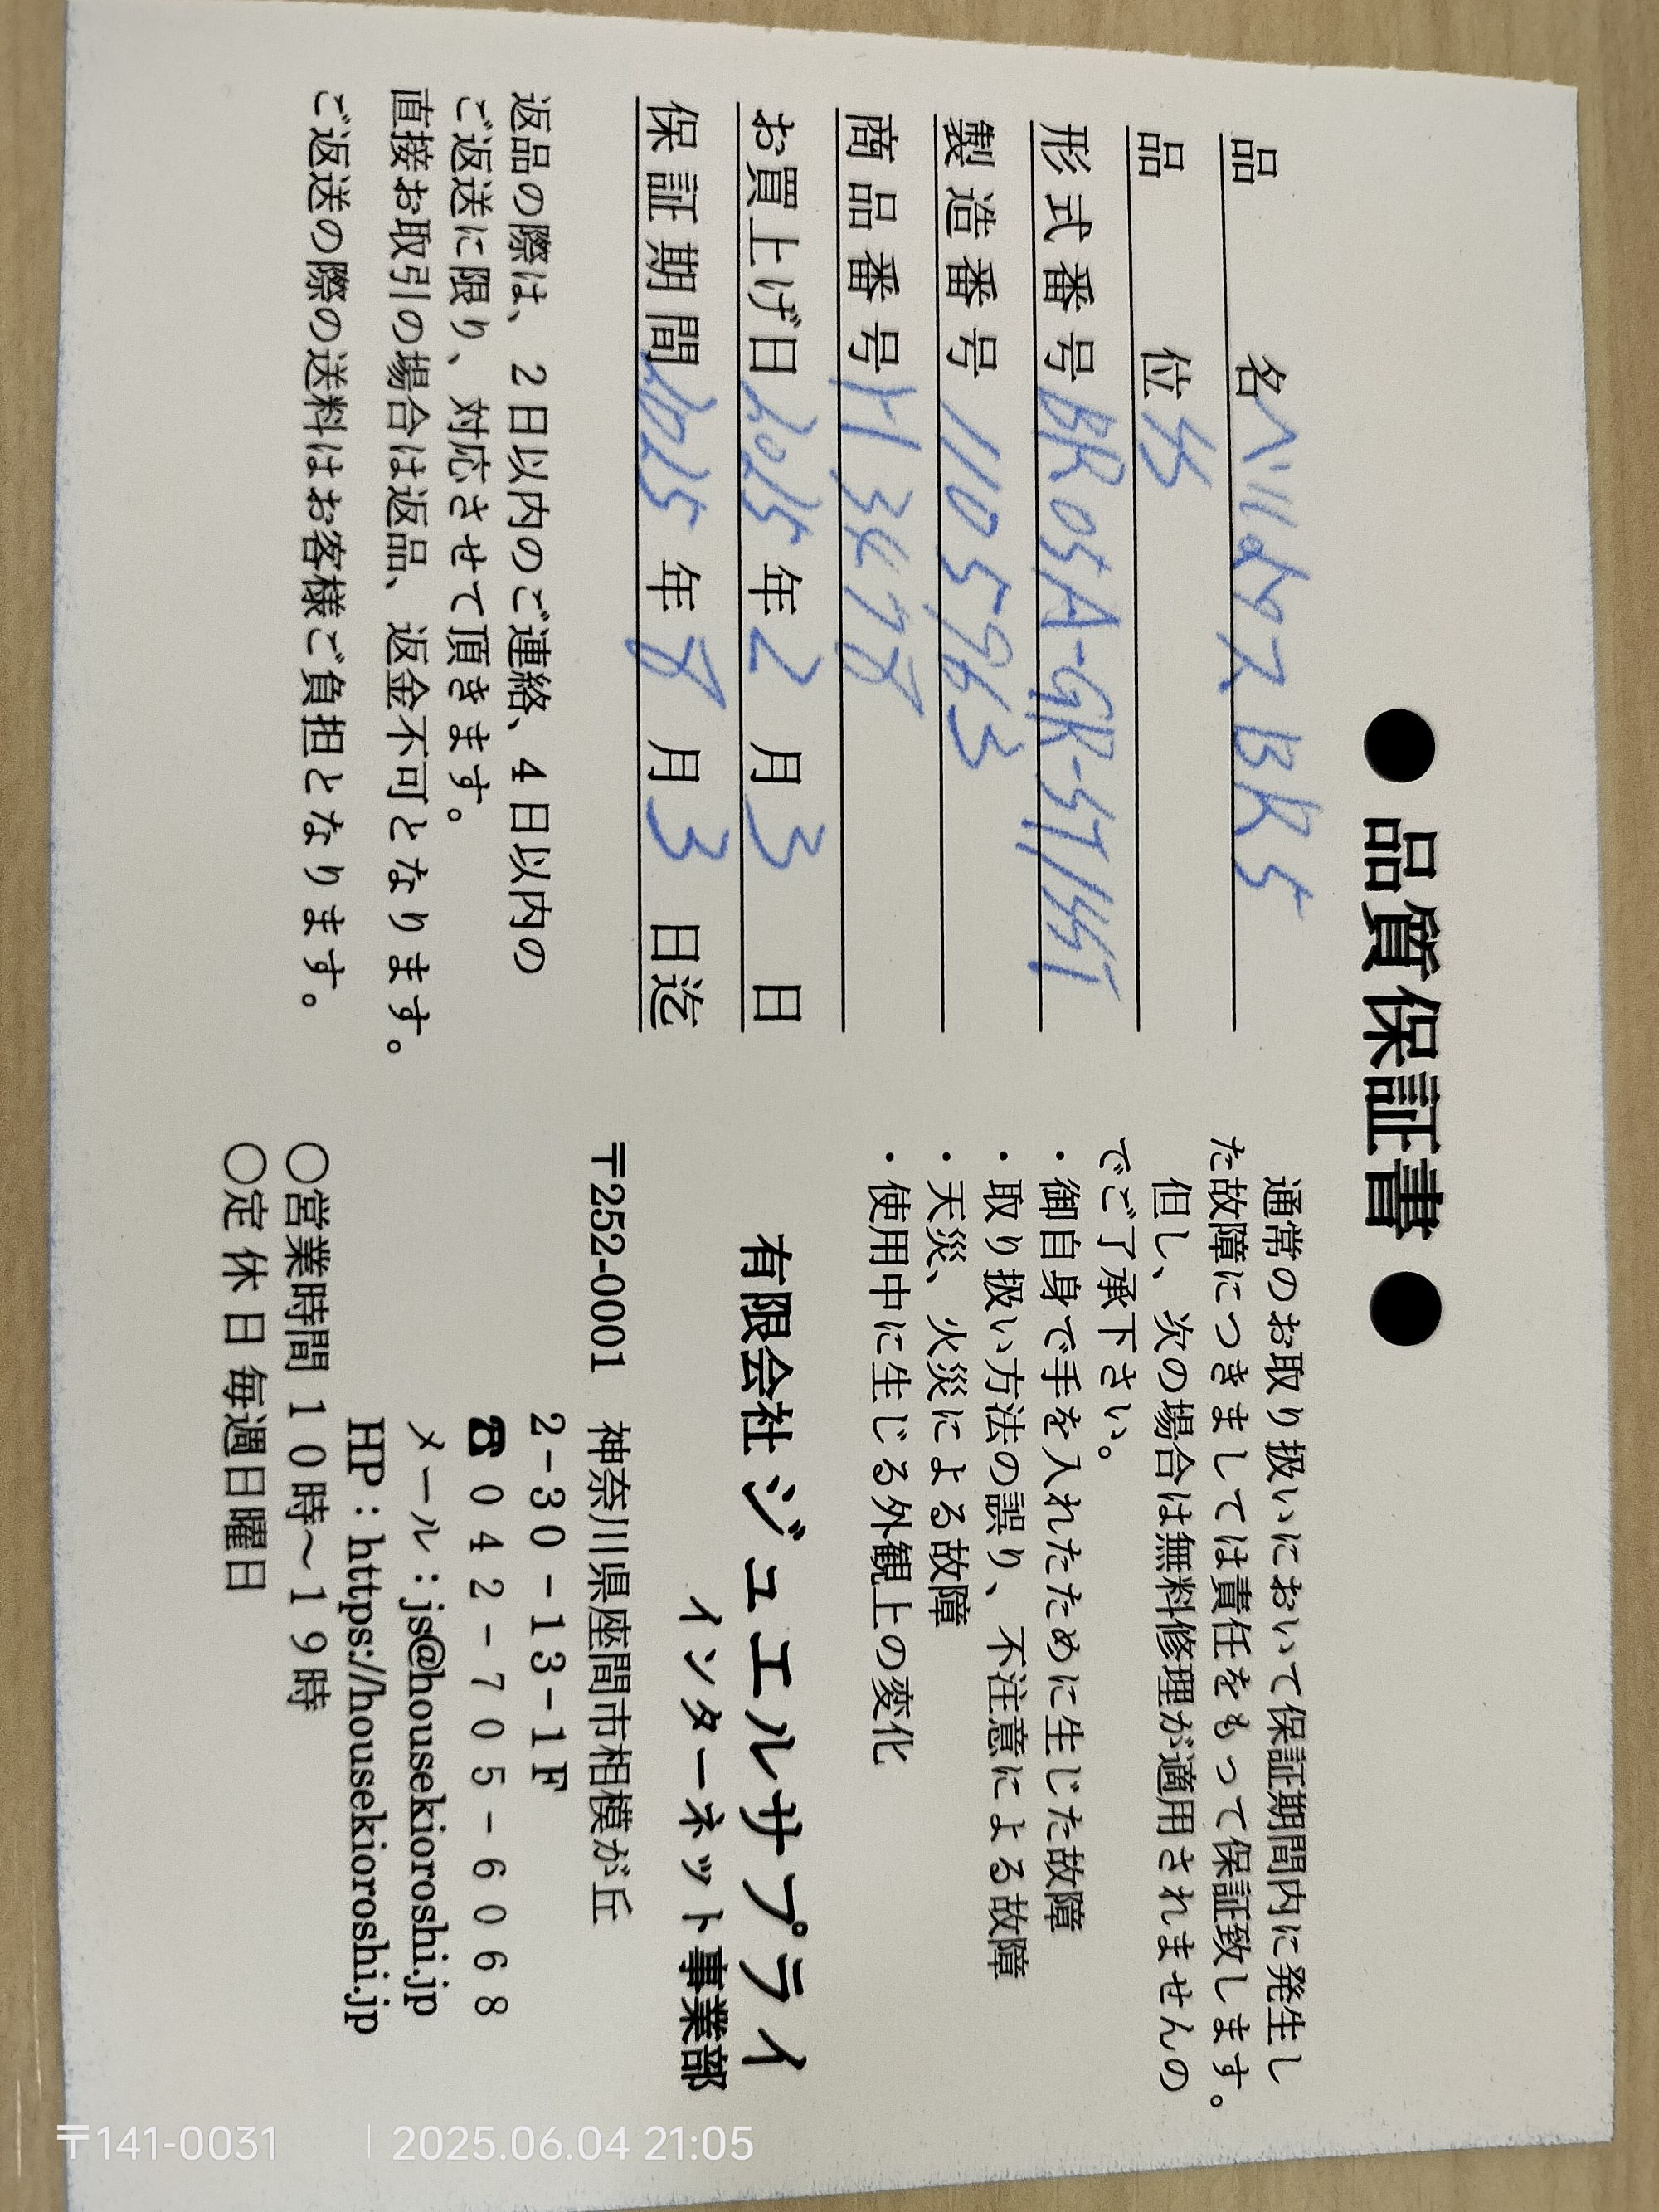 ●品質保証書●
品名 ベル&ロス BR5
品位 SS
形式番号 BR05A-GR-ST/SST
製造番号 1105963
商品番号 H3478
お買上げ日 2025年2月3日
保証期間 2025年8月3日迄
返品の際は、2日以内のご連絡、4日以内の
ご返送に限り、対応させて頂きます。
直接お取引の場合は返品、返金不可となります。
ご返送の際の送料はお客様ご負担となります。
通常のお取り扱いにおいて保証期間内に発生し
た故障につきましては責任をもって保証致します。
但し、次の場合は無料修理が適用されませんの
でご了承下さい。
・御自身で手を入れたために生じた故障
・取り扱い方法の誤り、不注意による故障
・天災、火災による故障
・使用中に生じる外観上の変化
有限会社ジュエルサプライ
インターネット事業部
〒252-0001 神奈川県座間市相模が丘
2-30-13-1F
☎042-705-6068
メール:js@housekioroshi.jp
HP:https://housekioroshi.jp
○営業時間 10時~19時
○定休日 毎週日曜日
〒141-0031 | 2025.06.04 21:05